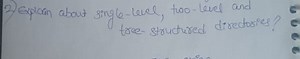 2) Explain about single-level, two-level and
tree-structured directories?